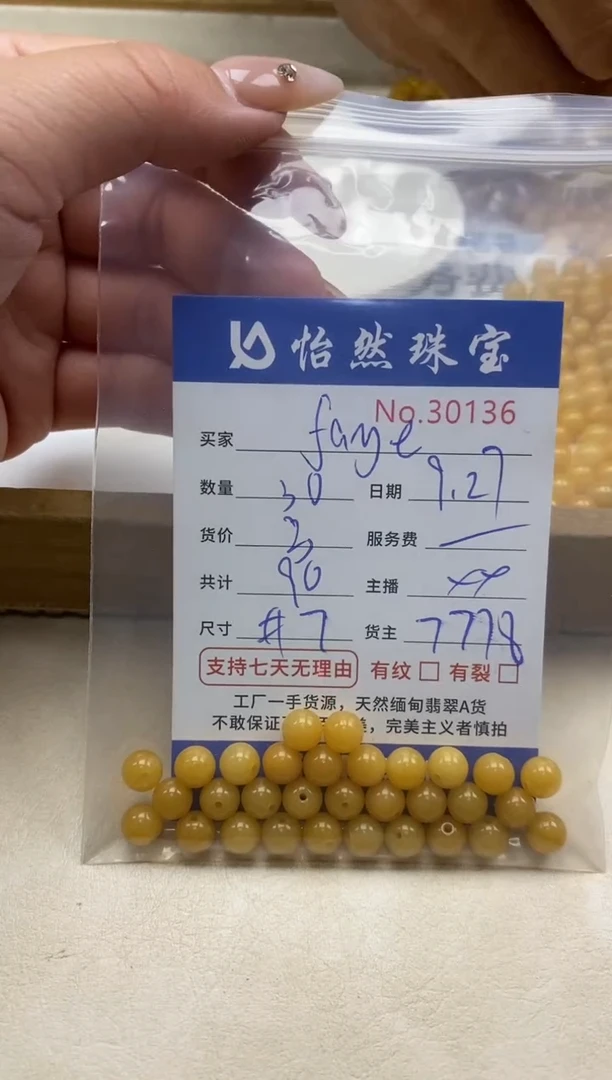 怡然珠宝
No.30136
买家 faye
数量 30 日期 9.27
货价 3 服务费
共计 90 主播
尺寸 #7 货主 7778
支持七天无理由 有纹 有裂
工厂一手货源，天然缅甸翡翠A货
不敢保证 美，完美主义者慎拍